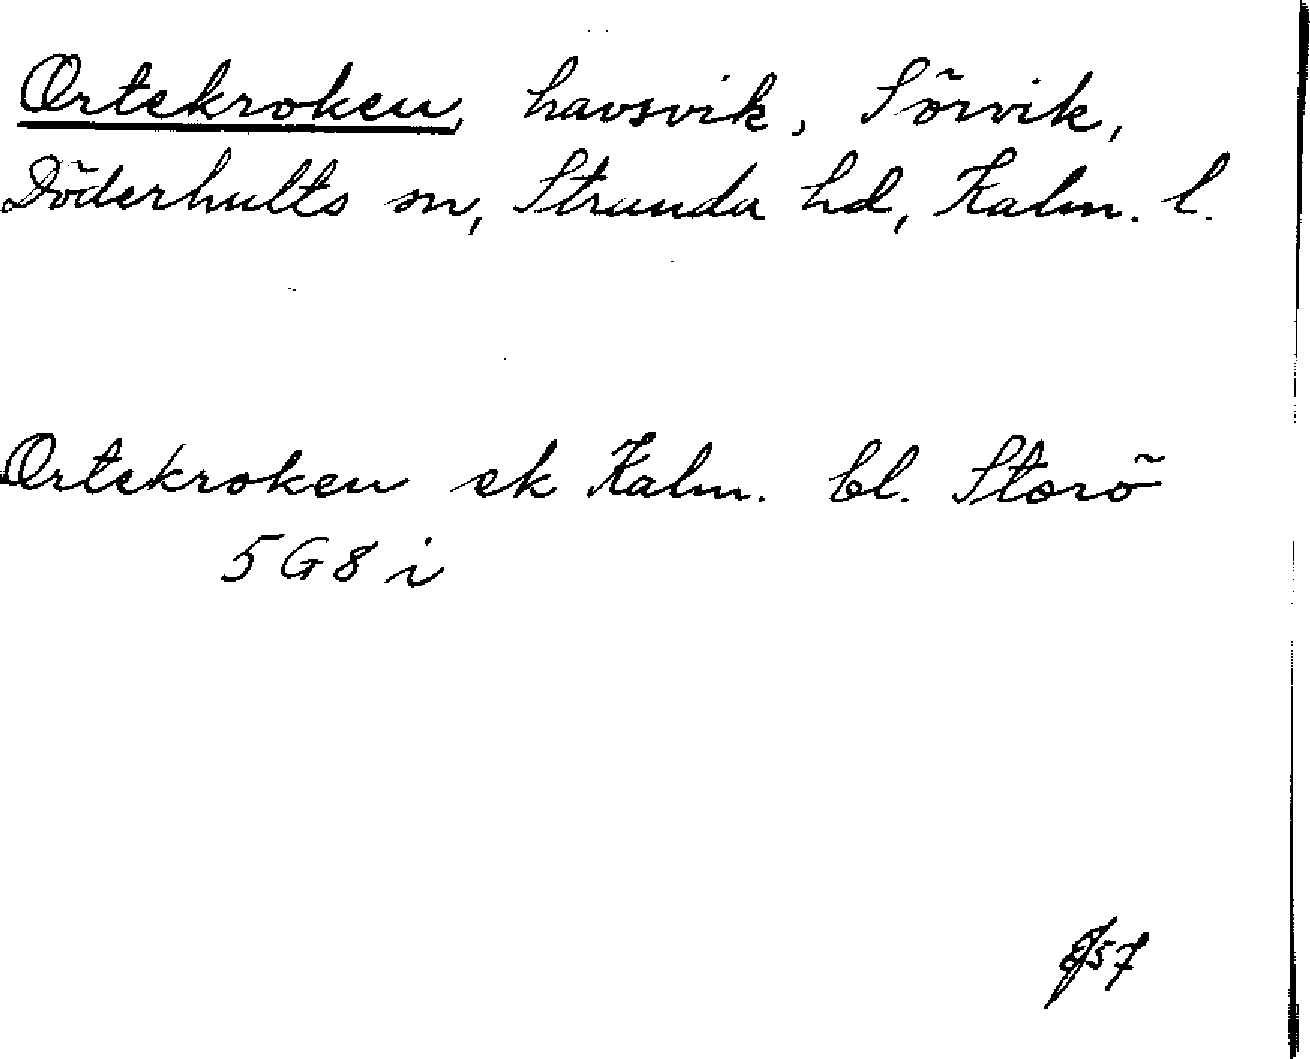 Ortekroken, havsvik, Sörvik,
Döderhults sn, Stranda hd, Kalm. l.
Ortekroken ek Kalm. bl. Storö
5G8i
57